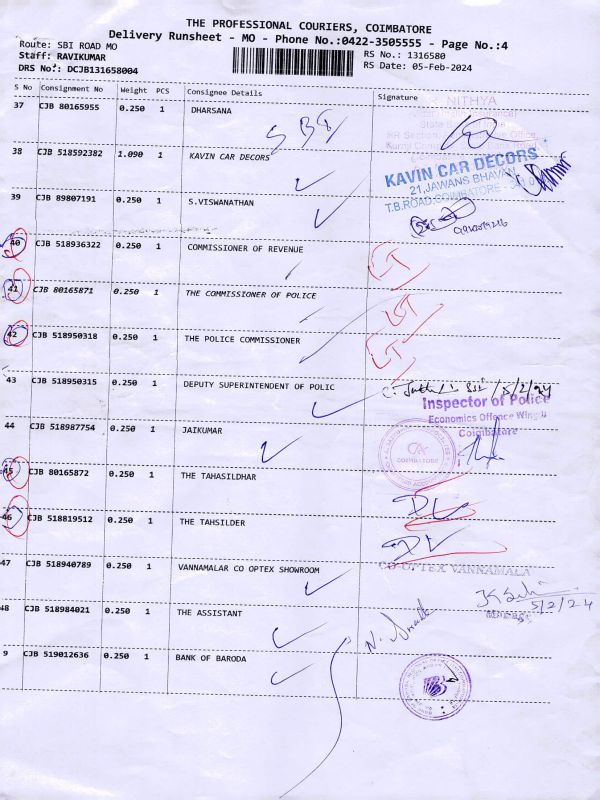 THE PROFESSIONAL COURIERS, COIMBATORE
Delivery Runsheet - MO - Phone No.:0422-3505555 - Page No.:4
Route: SBI ROAD MO
Staff: RAVIKUMAR
DRS No.: DCJB131658004
RS No.: 1316580
RS Date: 05-Feb-2024
S No Consignment No Weight PCS Consignee Details Signature
37 CJB 80165955 0.250 1 DHARSANA SBI
NITHYA
38 CJB 518592382 1.090 1 KAVIN CAR DECORS
KAVIN CAR DECORS
21, JAWANS BHAVAN
T.B.ROAD, COIMBATORE
39 CJB 89807191 0.250 1 S.VISWANATHAN
40 CJB 518936322 0.250 1 COMMISSIONER OF REVENUE LT
41 CJB 80165871 0.250 1 THE COMMISSIONER OF POLICE LT
42 CJB 518950318 0.250 1 THE POLICE COMMISSIONER LT
43 CJB 518950315 0.250 1 DEPUTY SUPERINTENDENT OF POLIC 5/2/24
Inspector of Police
Economics Offence Wing II
Coimbatore
44 CJB 518987754 0.250 1 JAIKUMAR
CA
COIMBATORE
45 CJB 80165872 0.250 1 THE TAHASILDHAR DL
46 CJB 518819512 0.250 1 THE TAHSILDER DL
47 CJB 518940789 0.250 1 VANNAMALAR CO OPTEX SHOWROOM
CO-OPTEX VANNAMALA
5/2/24
48 CJB 518984021 0.250 1 THE ASSISTANT
9 CJB 519012636 0.250 1 BANK OF BARODA